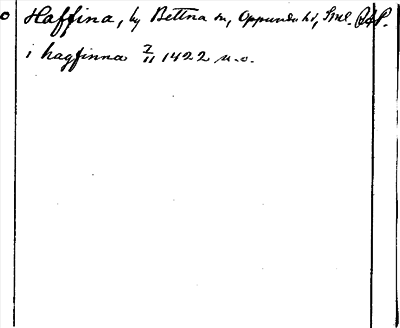 Haffina, by Bettna sn, Oppunda hd, Sml. RAP.
i hagfinna 2/11 1422 u.o.